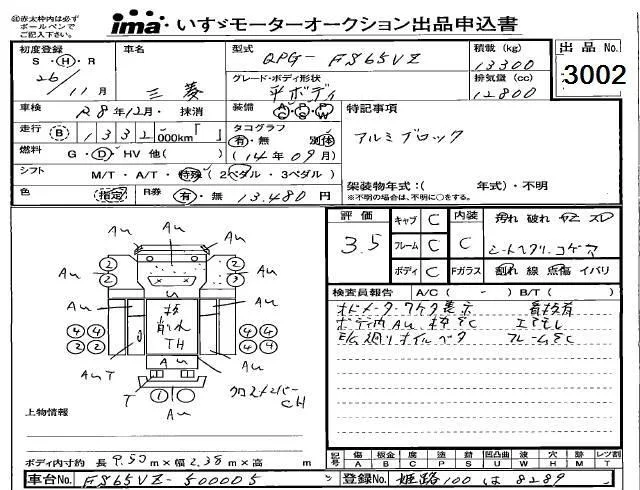 ㊟赤太枠内は必ず
ボールペンで
ご記入下さい。
ima いすゞモーターオークション出品申込書
初度登録
S・H・R
26/11月
車名
三菱
型式
QPG-FS65VZ
積載 (kg)
13300
出品No.
3002
グレード・ボディ形状
平ボディ
排気量 (cc)
12800
車検
R8年12月・抹消
装備
A C P S P W
特記事項
アルミブロック
走行 B 1332,000km「 」
タコグラフ
有・無 別体
(14年09月)
燃料
G・D・HV 他( )
シフト
M/T・A/T・特殊 (2ペダル・3ペダル)
架装物年式:( 年式)・不明
※不明の場合は、不明に○をする。
色
指定
R券
有・無 13,480円
評価
3.5
キャブ C
フレーム C
ボディ C
内装
C
Fガラス
汚れ 破れ ヤニ スレ
シートヘタリ・コゲ
割れ 線 点傷 イバリ
検査員報告 A/C( - ) B/T( )
オドメーター
ボディ内AU
オイル
フレーム
AU AU AU AU
2 2 2 3
AU AU
4 4 4 4
2 2 4 4
TH
AUT AU AU
T
1
AU
クロスメンバー
CH
上物情報
ボディ内寸約 長 9.50m×幅 2.38m×高 m
記号
傷 A
板金 B
腐 C
塗 P
錆 S
凹凸曲 U
波 W
穴 H
跡 M
レツ割 T
車台No. FS65VZ-500005
登録No. 姫路100 は 8289